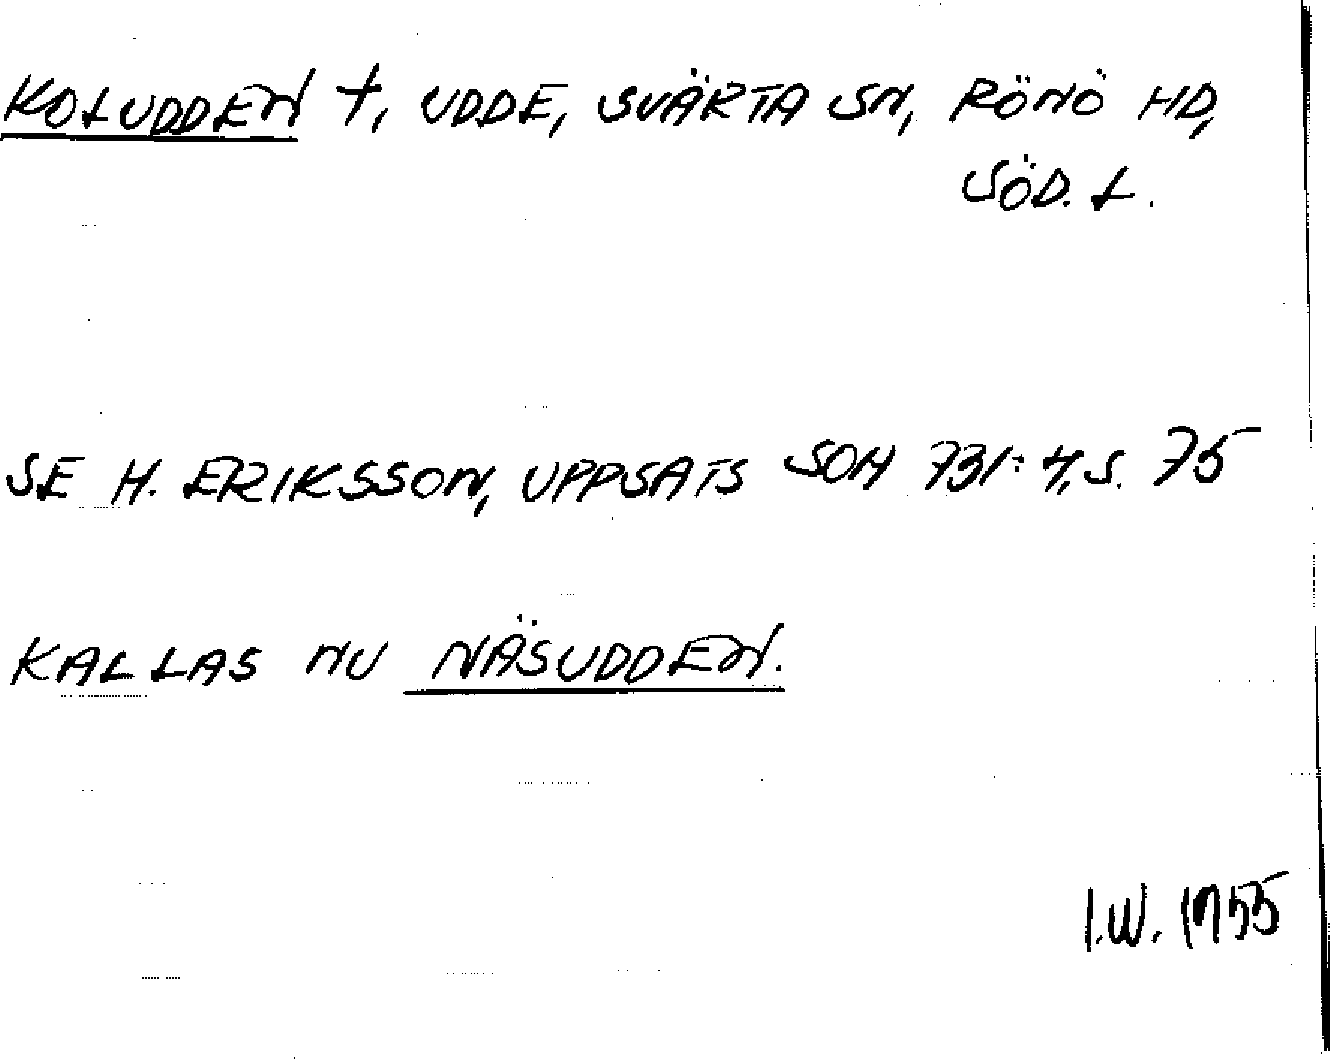 KOLUDDEN †, UDDE, SVÄRTA SN, RÖNÖ HD,
SÖD. L.
SE H. ERIKSSON, UPPSATS SOH 731:4, S. 75
KALLAS NU NÄSUDDEN.
I.W. 1955